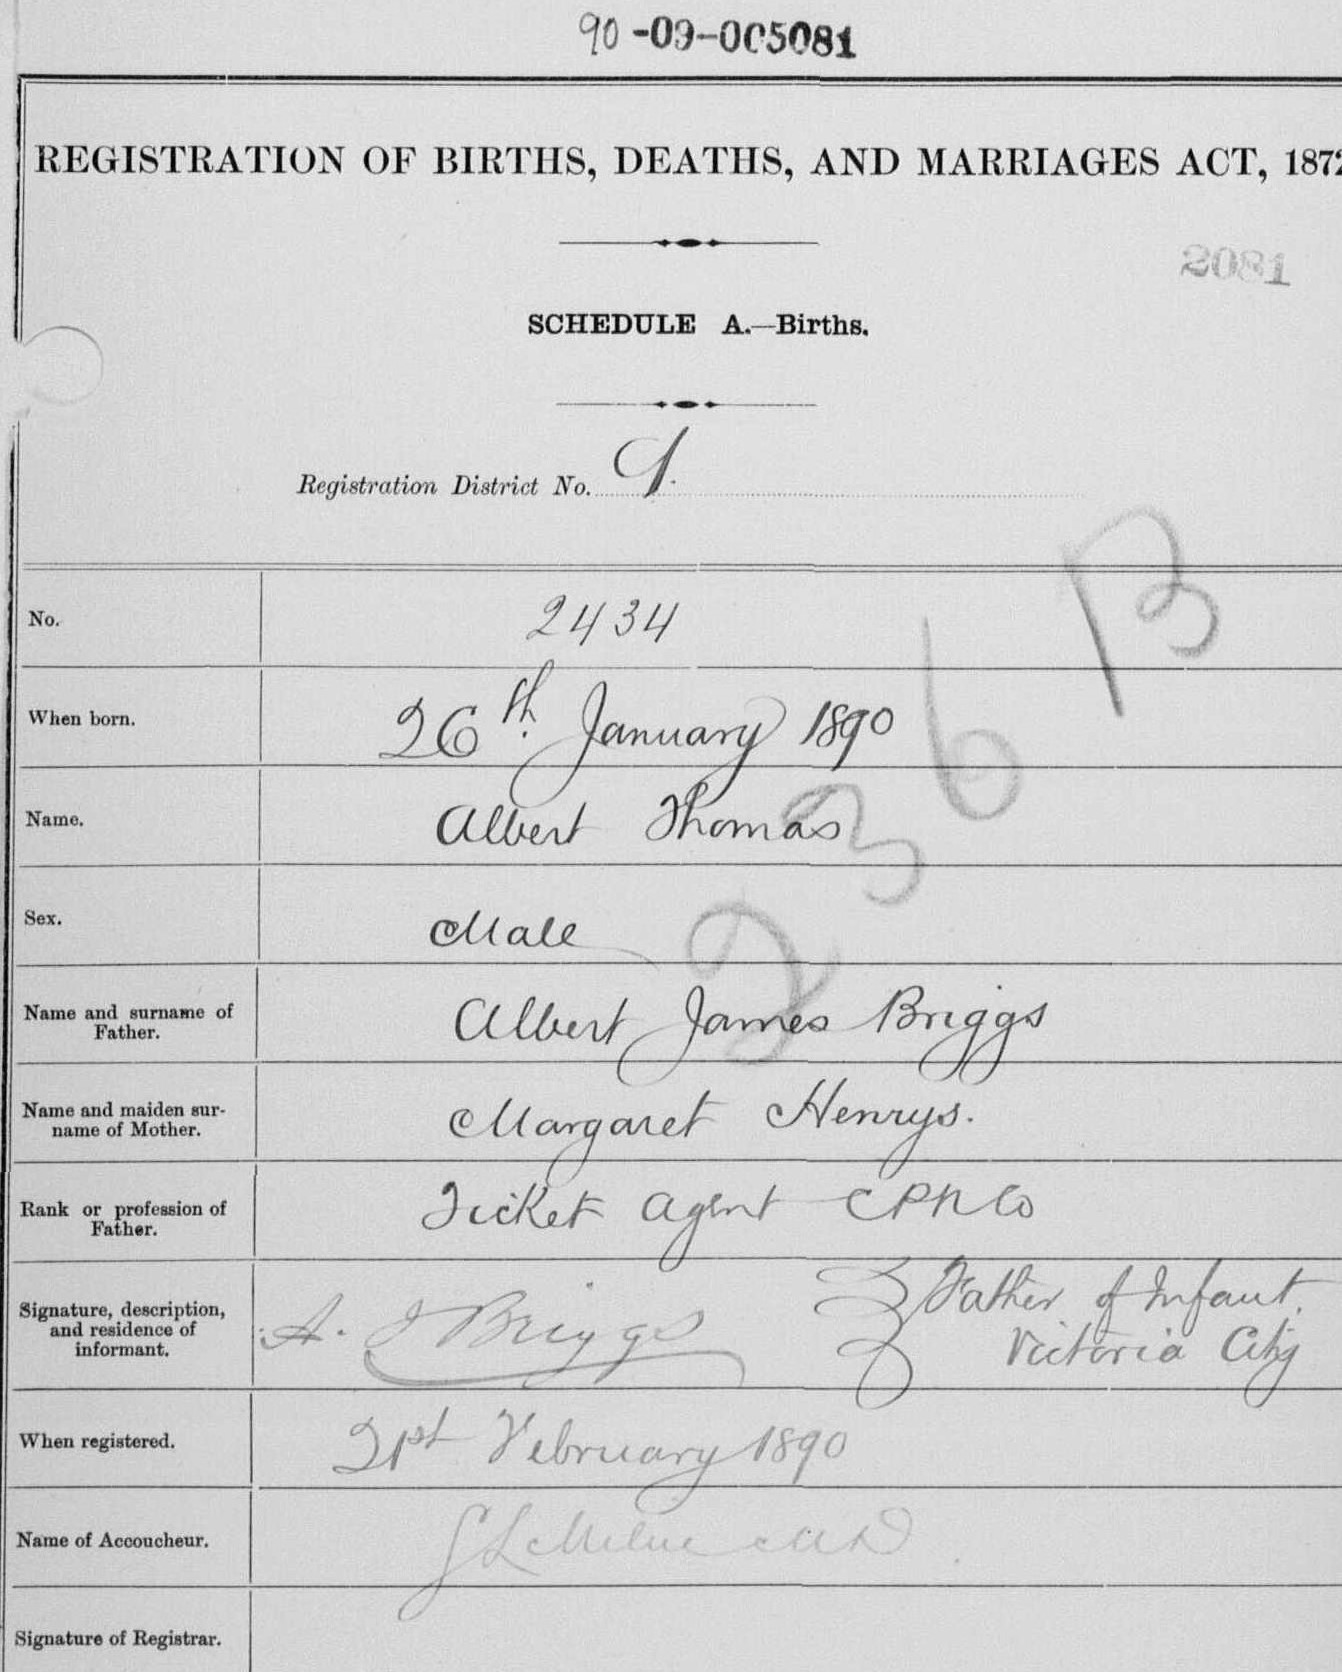 90-09-005081
REGISTRATION OF BIRTHS, DEATHS, AND MARRIAGES ACT, 1872
2081
SCHEDULE A.—Births.
Registration District No. 9.
B
No. 2434
6
When born. 26th January 1890
Name. Albert Thomas
3
Sex. Male
2
Name and surname of Father. Albert James Briggs
Name and maiden surname of Mother. Margaret Henrys.
Rank or profession of Father. Ticket Agent CPN Co
Signature, description, and residence of informant. A. J Briggs Father of Infant.
Victoria City
When registered. 21st February 1890
Name of Accoucheur. G L Milne MD
Signature of Registrar.